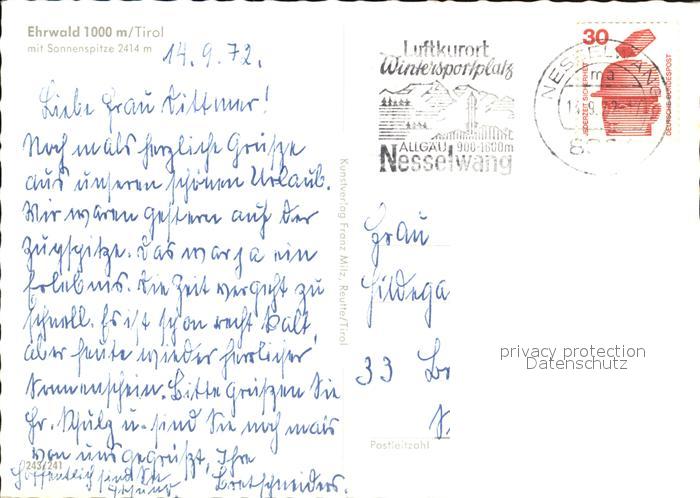 Ehrwald 1000 m/Tirol
mit Sonnenspitze 2414 m
14.9.72.
Liebe Frau Dittmer!
Nochmals herzliche Grüsse
aus unseren schönen Urlaub.
Wir waren gestern auf der
Zugspitze. Das war ja ein
Erlebnis. Die Zeit vergeht zu
schnell. Es ist schon recht kalt,
aber heute wieder herrlicher
Sonnenschein. Bitte grüßen Sie
Hr. Schulz u. sind Sie nochmals
von uns gegrüßt, Ihre
Bretschneiders.
Hoffentlich sind Sie
gesund
243/241
Kunstverlag Franz Milz, Reutte/Tirol
Luftkurort
Wintersportplatz
ALLGÄU 900-1600m
Nesselwang
NESSELWANG
ma
30
JEDERZEIT SICHERHEIT
DEUTSCHE BUNDESPOST
Frau
Hildega
33 Br
S.
Postleitzahl
privacy protection
Datenschutz